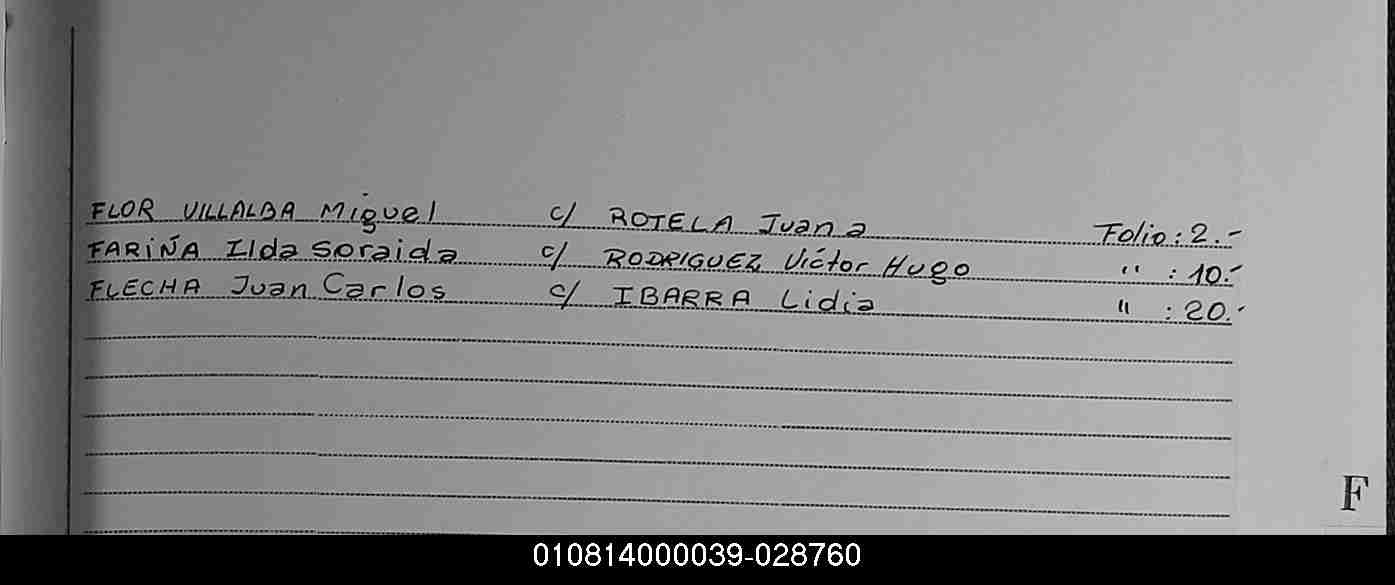 FLOR VILLALBA Miguel c/ ROTELA Juana Folio: 2.-
FARIÑA Ilda Soraida c/ RODRIGUEZ Víctor Hugo " : 10.-
FLECHA Juan Carlos c/ IBARRA Lidia " : 20.-
F
010814000039-028760